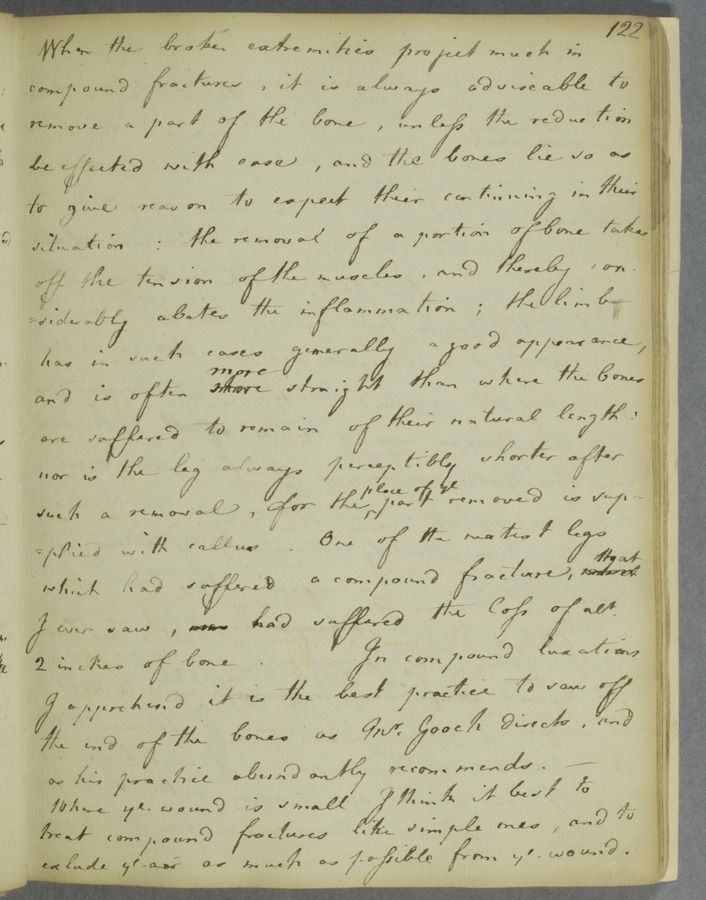 122
When the broken extremities project much in
compound fractures, it is always adviseable to
remove a part of the bone, unless the reduction
be effected with ease, and the bones lie so as
to give reason to expect their continuing in their
situation : the removal of a portion of bone takes
off the tension of the muscles, and thereby con-
=siderably abates the inflammation ; the limb
has in such cases generally a good appearance,
and is often more straight than where the bones
are suffered to remain of their natural length :
nor is the leg always perceptibly shorter after
such a removal, for the place of ye part removed is sup-
=plied with callus. One of the neatest legs
which had suffered a compound fracture, that
I ever saw, had suffered the loss of abt.
2 inches of bone. In compound luxations
I apprehend it is the best practice to saw off
the end of the bones as Mr. Gooch directs, and
as his practice abundantly recommends. —
Where ye. wound is small I think it best to
treat compound fractures like simple ones, and to
exclude ye. air as much as possible from ye. wound.